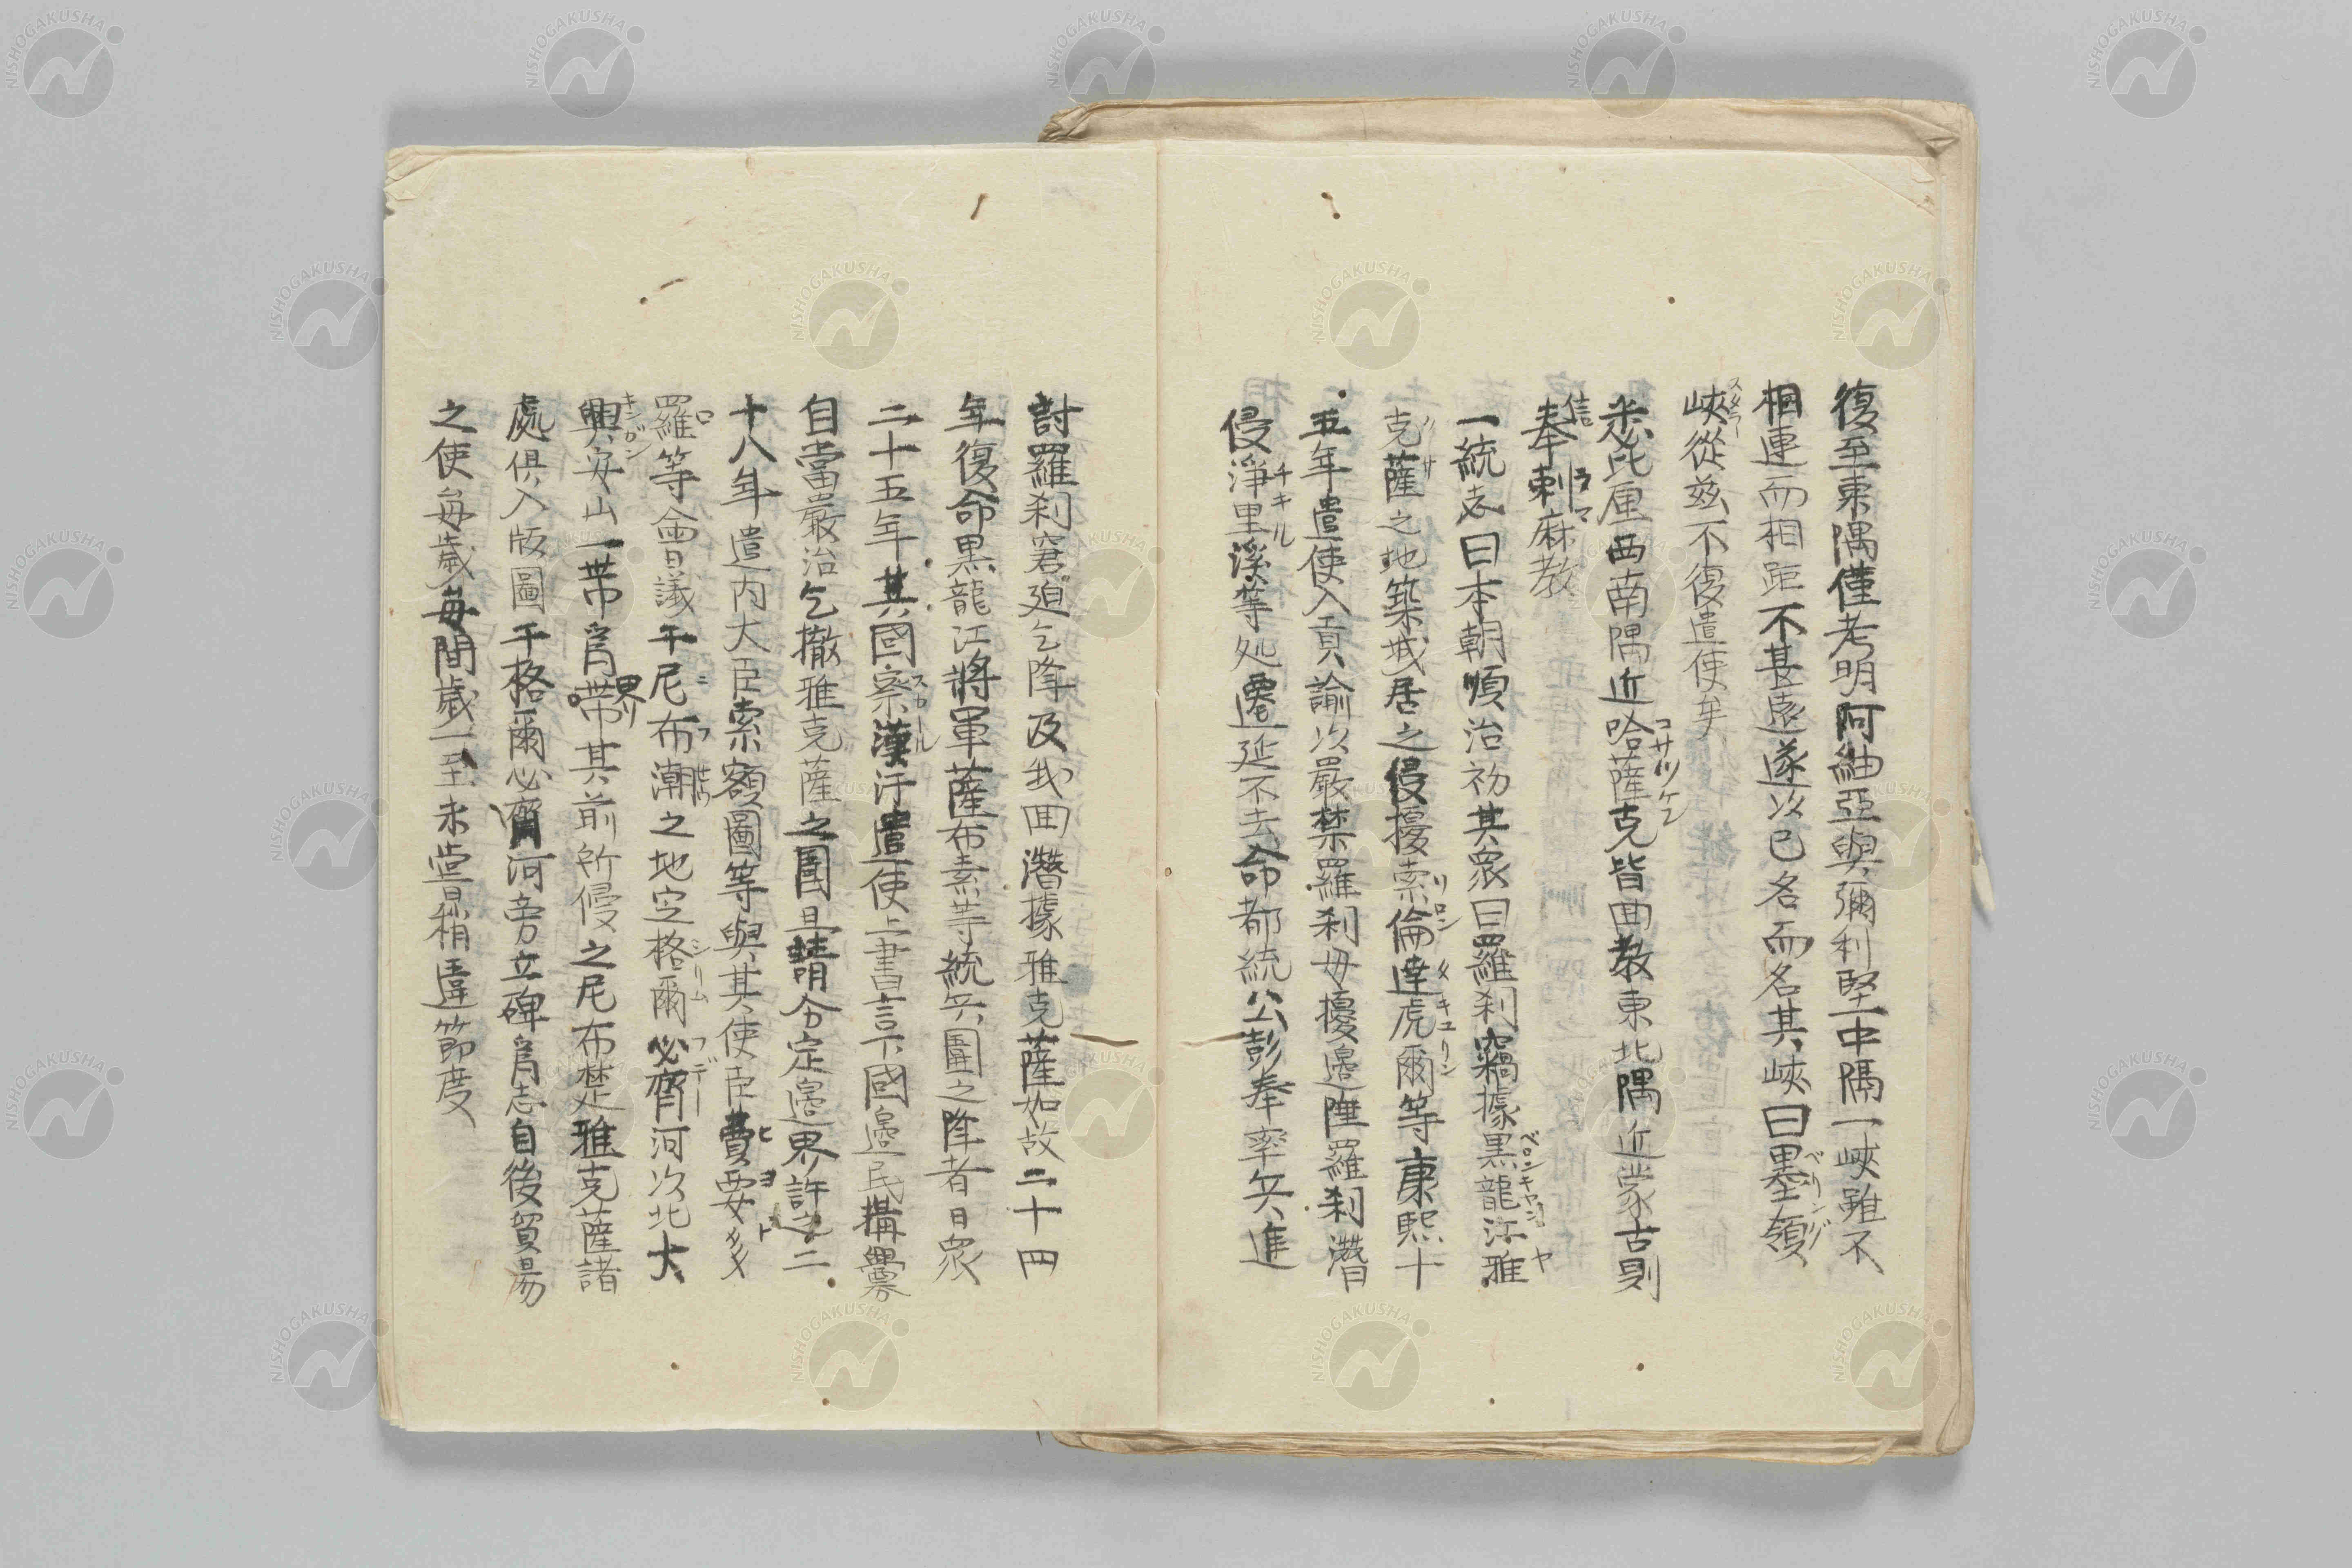 復至東隅僅考明阿細亞與彌利堅中隔一峽雖不
相連而相距不甚遠遂以已名而名其峽曰墨領
峽從茲不復遣使矣
悉比厘西南隅近哈薩克皆回教東北隅近蒙古則
奉剌麻教
一統志曰本朝順治初其衆曰羅刹竊據黒龍江雅
克薩之地築城居之侵擾索倫達虎爾等康熙十
五年遣使入貢諭以嚴禁羅刹毋擾邊陲羅刹潛
侵淨里溪等処遷延不去命都統公彭奉率兵進
討羅刹窘廹乞降及我回潛據雅克薩如故二十四
年復命黒龍江將軍薩布素等統兵圍之降者日衆
二十五年其國察漢汗遣使上書言下國邊民搆釁
自當嚴治乞撤雅克薩之圍且請令定邊界許之二
十八年遣内大臣索額圖等與其使臣費要多
羅等會議于尼布潮之地定格爾必齊河以北大
興安山一帯爲界其前所侵之尼布楚雅克薩諸
處俱入版圖于格爾必齊河旁立碑爲志自後貿易
之使毎歳毎間歳一至未嘗稍違節度
NISHOGAKUSHA